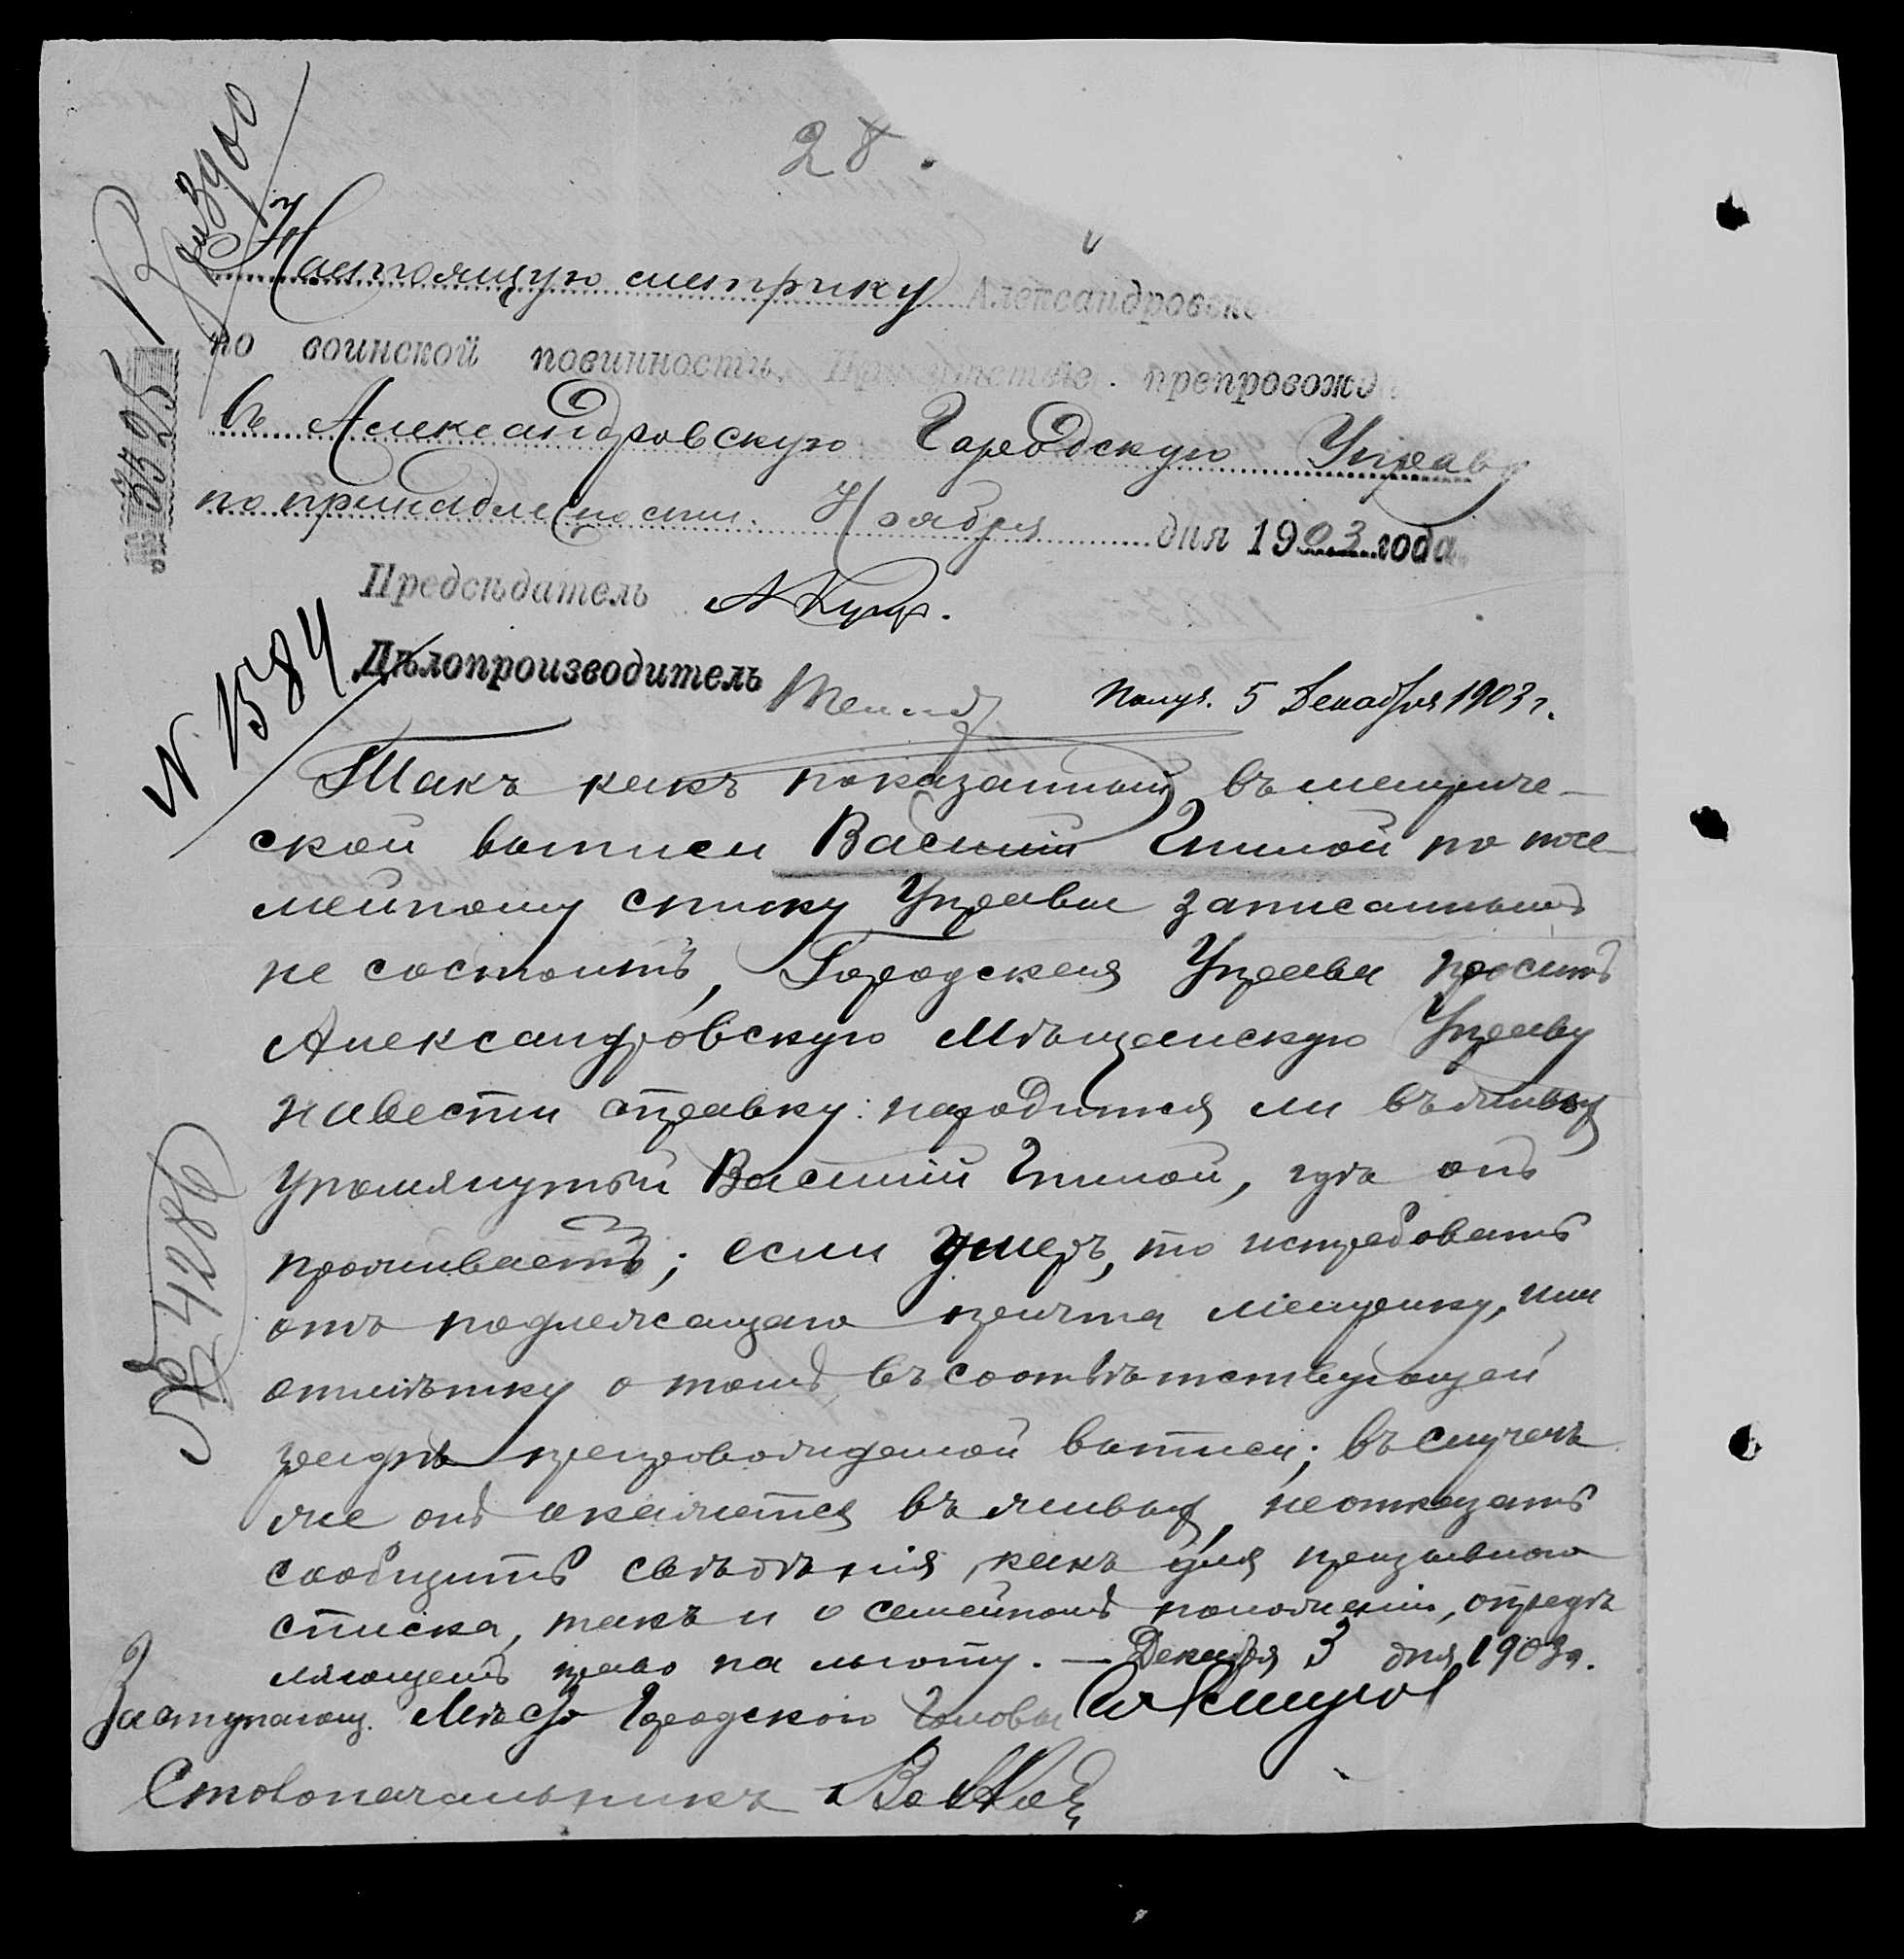 28.
Настоящую метрику Александровское
по воинской повинности Присутствіе препровожд
въ Александровскую Городскую Управу
по принадлежности. Ноября дня 1903 года.
№ 3525
Предсѣдатель
Дѣлопроизводитель
№ 1584
Получ. 5 Декабря 1903 г.
Такъ какъ показанный въ метриче-
ской выписи Василій Гнилой по посе-
мейному списку Управы записаннымъ
не состоитъ, Городская Управа проситъ
Александровскую Мѣщанскую Управу
навести справку: находится ли въ живыхъ
упомянутый Василій Гнилой, гдѣ онъ
проживаетъ; если умеръ, то истребовать
отъ подлежащаго причта метрику, или
отмѣтку о томъ въ соотвѣтствующей
графѣ препровождаемой выписи; въ случаѣ
же онъ окажется въ живыхъ, не отказать
сообщить свѣдѣнія, какъ для призывного
списка, такъ и о семейномъ положеніи, опредѣ
ляющемъ право на льготу. — Декабря 3 дня 1903 г.
№ 4286
Заступающ. Мѣсто Городского Головы
Столоначальникъ